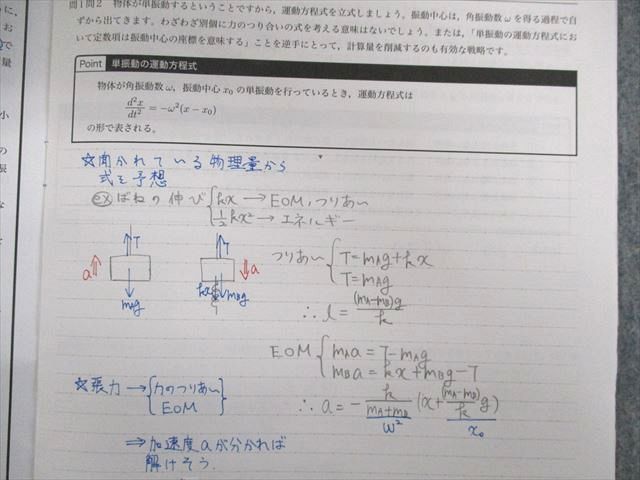 問1問2 物体が単振動するということですから，運動方程式を立式しましょう．振動中心は，角振動数ωを得る過程で自
ずから出てきます．わざわざ別個に力のつり合いの式を考える意味はないでしょう．または，「単振動の運動方程式にお
いて定数項は振動中心の座標を意味する」ことを逆手にとって，計算量を削減するのも有効な戦略です．
Point 単振動の運動方程式
物体が角振動数ω，振動中心 x₀ の単振動を行っているとき，運動方程式は
d²x/dt² = −ω²(x − x₀)
の形で表される．
☆聞かれている物理量から
式を予想
ex ばねの伸び { kx → EOM, つりあい
½kx² → エネルギー
a T mAg
T kx mBg a
つりあい { T = mAg + kx
T = mAg
∴ l = (mA−mB)g/k
EOM { mAa = T − mAg
mBa = kx + mBg − T
∴ a = − k/(mA+mB) (x + (mA−mB)/k g)
ω² x₀
☆張力 → { 力のつりあい
EOM }
⇒ 加速度aが分かれば
解けそう.